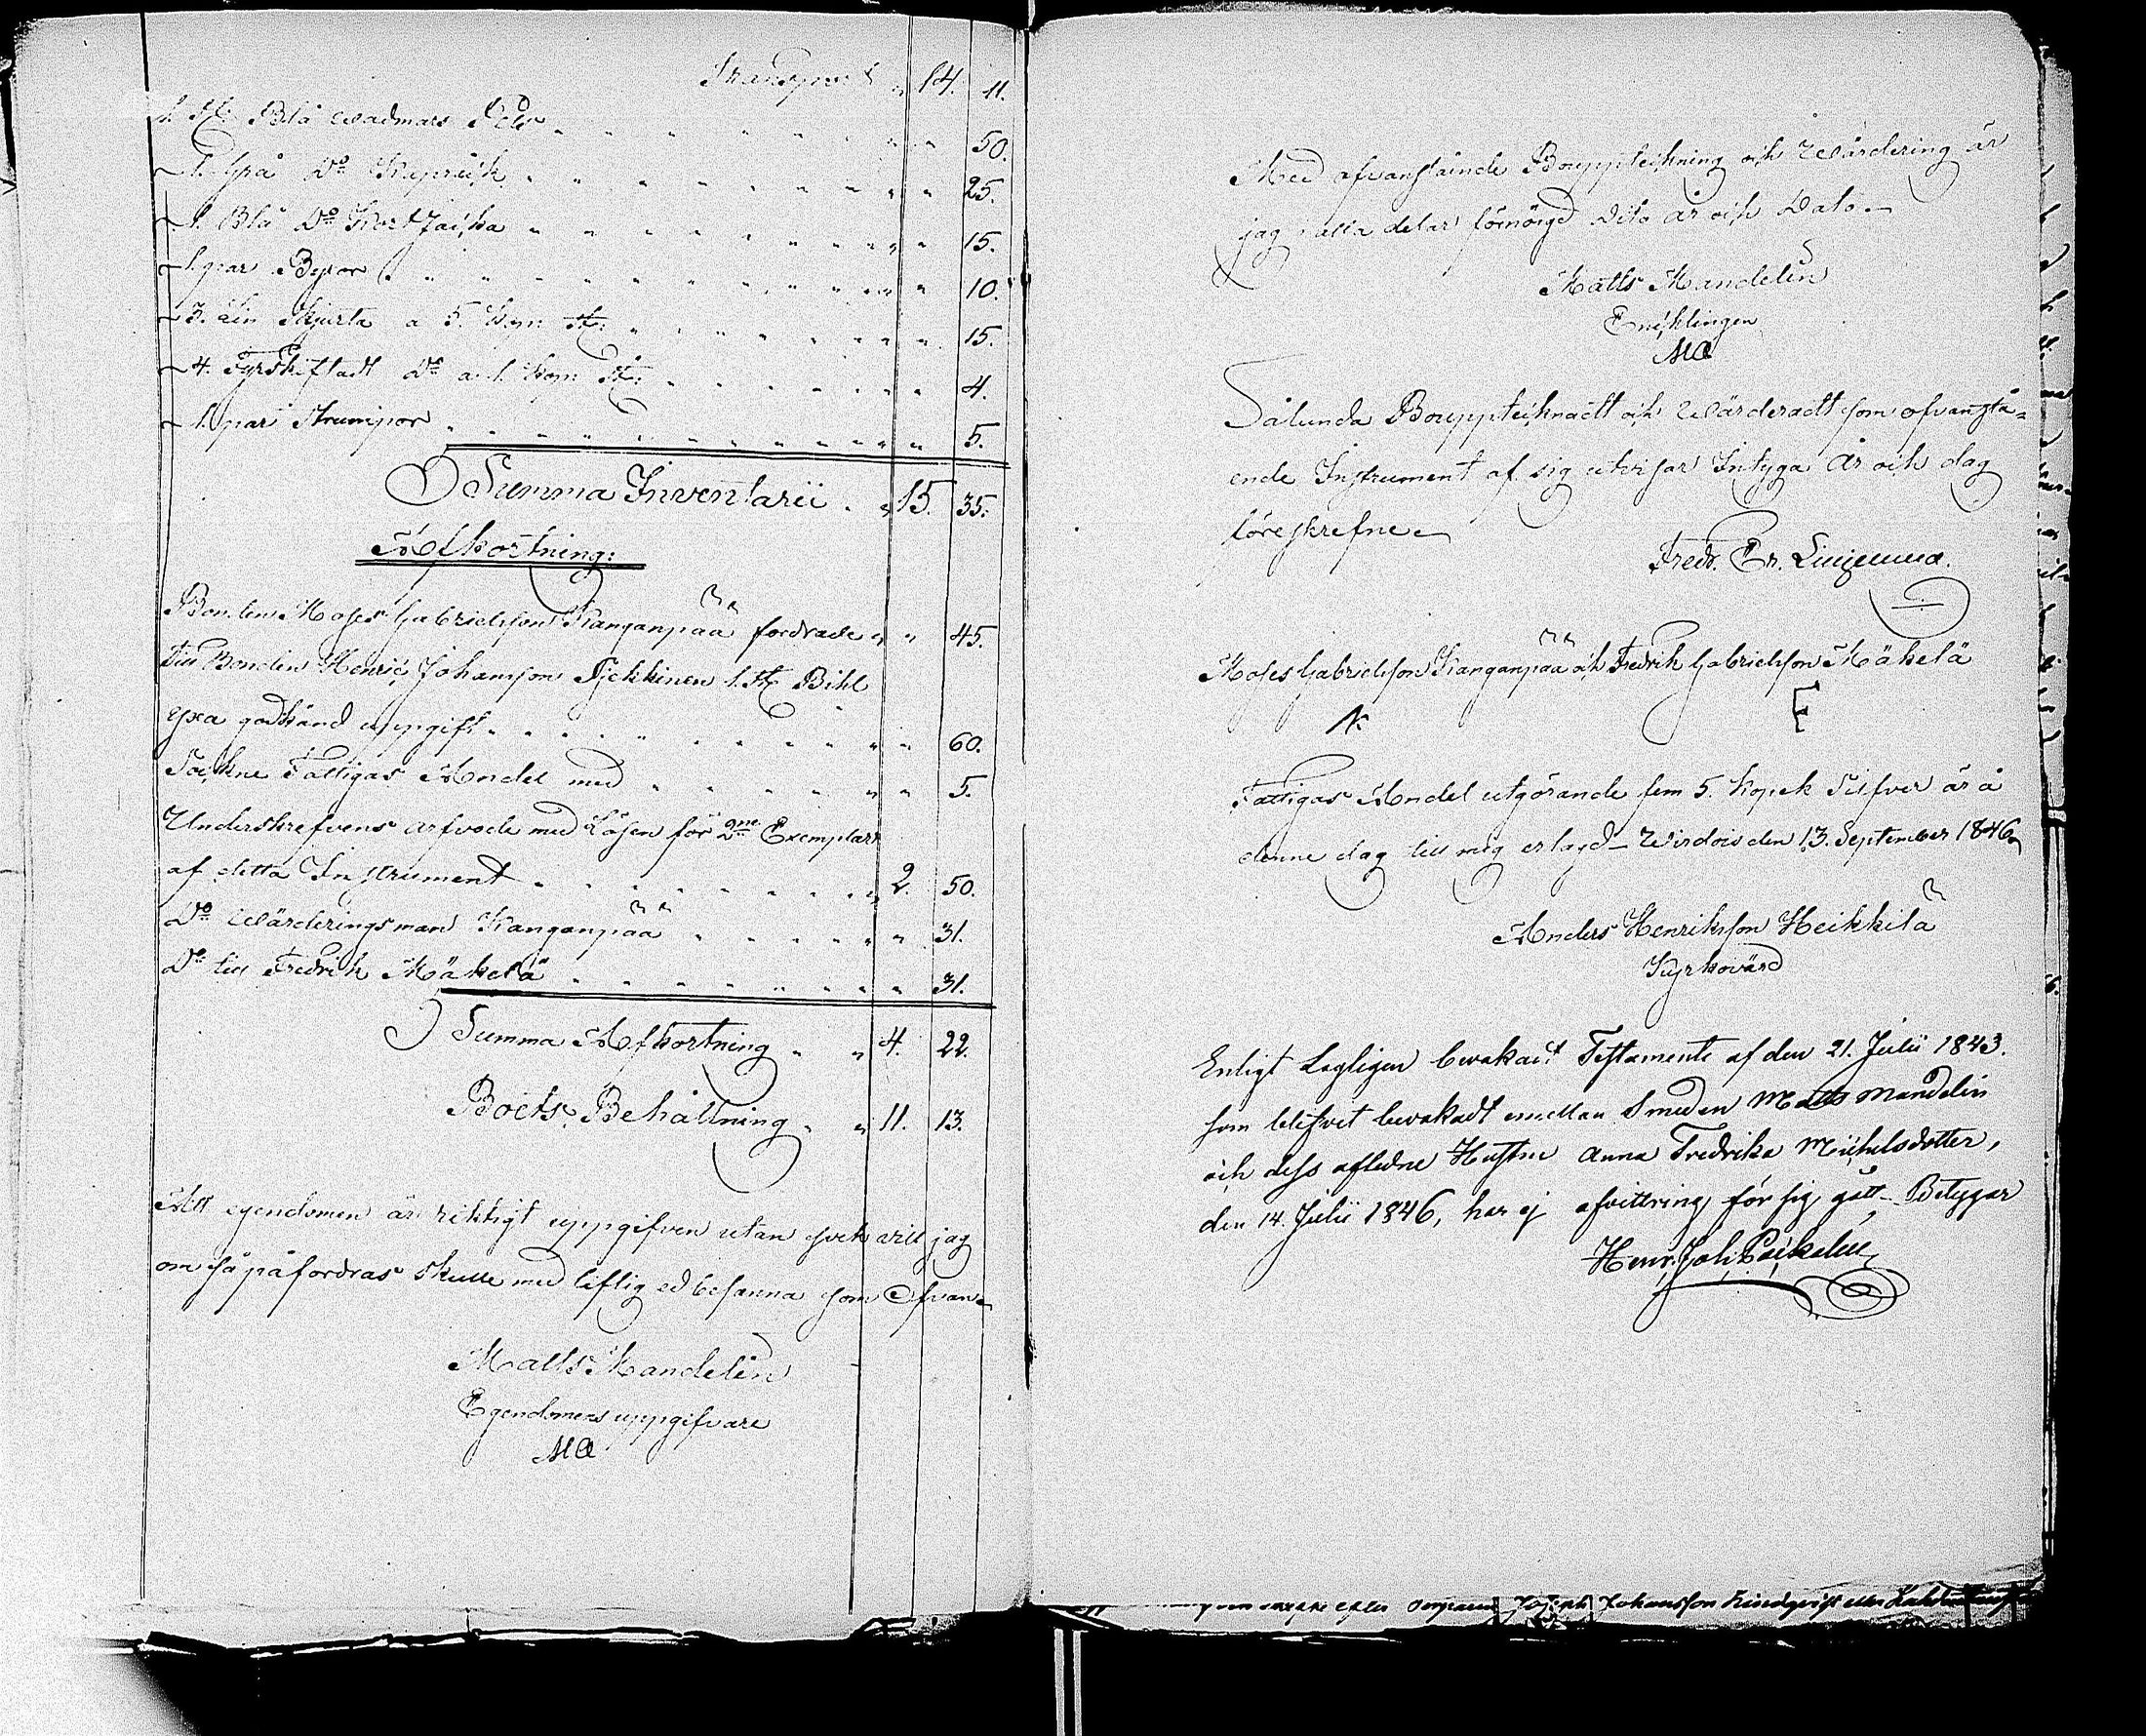 Transport „ 14. 11.
1. St: Blå Wadmars Pels „ „ 50.
1. Grå Do Kapråck „ „ 25.
1. Blå Do Kort Jacka „ „ 15.
1. par Byxor „ „ 10.
3. Lin Skjorta a 5. Kop: St: „ „ 15.
4. Do a 1. Kop: St: „ „ 4.
1. par Strumpor „ „ 5.
Summa Inventarii „ 15. 35.
Afkortning:
Bonden Moses Gabrielsson Kanganpää fordrade „ „ 45.
Till Bonden Henric Johansson 1. St: Bihl
yxa godkänd uppgift „ „ 60.
Sockne Fattigas Andel med „ „ 5.
Underskrefvens arfvode med Lösen för 2ne Exemplar
af detta Instrument „ 2. 50.
Do Wärderingsman Kanganpää „ „ 31.
Do till Fredrik Mäkelä „ „ 31.
Summa Afkortning „ „ 4. 22.
Boets Behållning „ „ 11. 13.
Att egendomen är riktigt uppgifven utan svek vill jag
om så påfordras skulle med liflig ed besanna som Ofvan
Matts Mandelin
Egendomens uppgifvare
MÆ
Med ofvanstående Bouppteckning och Wärdering är
jag i alla delar förnöigd Dito år och Dato
Matts Mandelin
Encklingen
MÆ
Sålunda Bouppteknadt och Wärderadt som ofvanstå-
ende Instrument af sig utvisar Intyga År och dag
föreskrefne
Fredr. Er.
Moses Gabrielsson Kanganpää och Fredrik Gabrielsson Mäkelä
Fattigas Andel utgörande fem 5. kopek Silfver är å
denne dag till mig erlagd Wirdois den 13. September 1846
Anders Henriksson Heikkilä
Kyrkovärd
Enligt Lagligen bevakadt Testamente af den 21. Julii 1843.
som blifvit bevakadt emellan Smeden Matts Mandelin
och dess aflidne Hustru Anna Fredrika Michelsdotter,
den 14. Julii 1846, har ej afvittring för sig gått Betygar
Henr. Joh.
Johansson